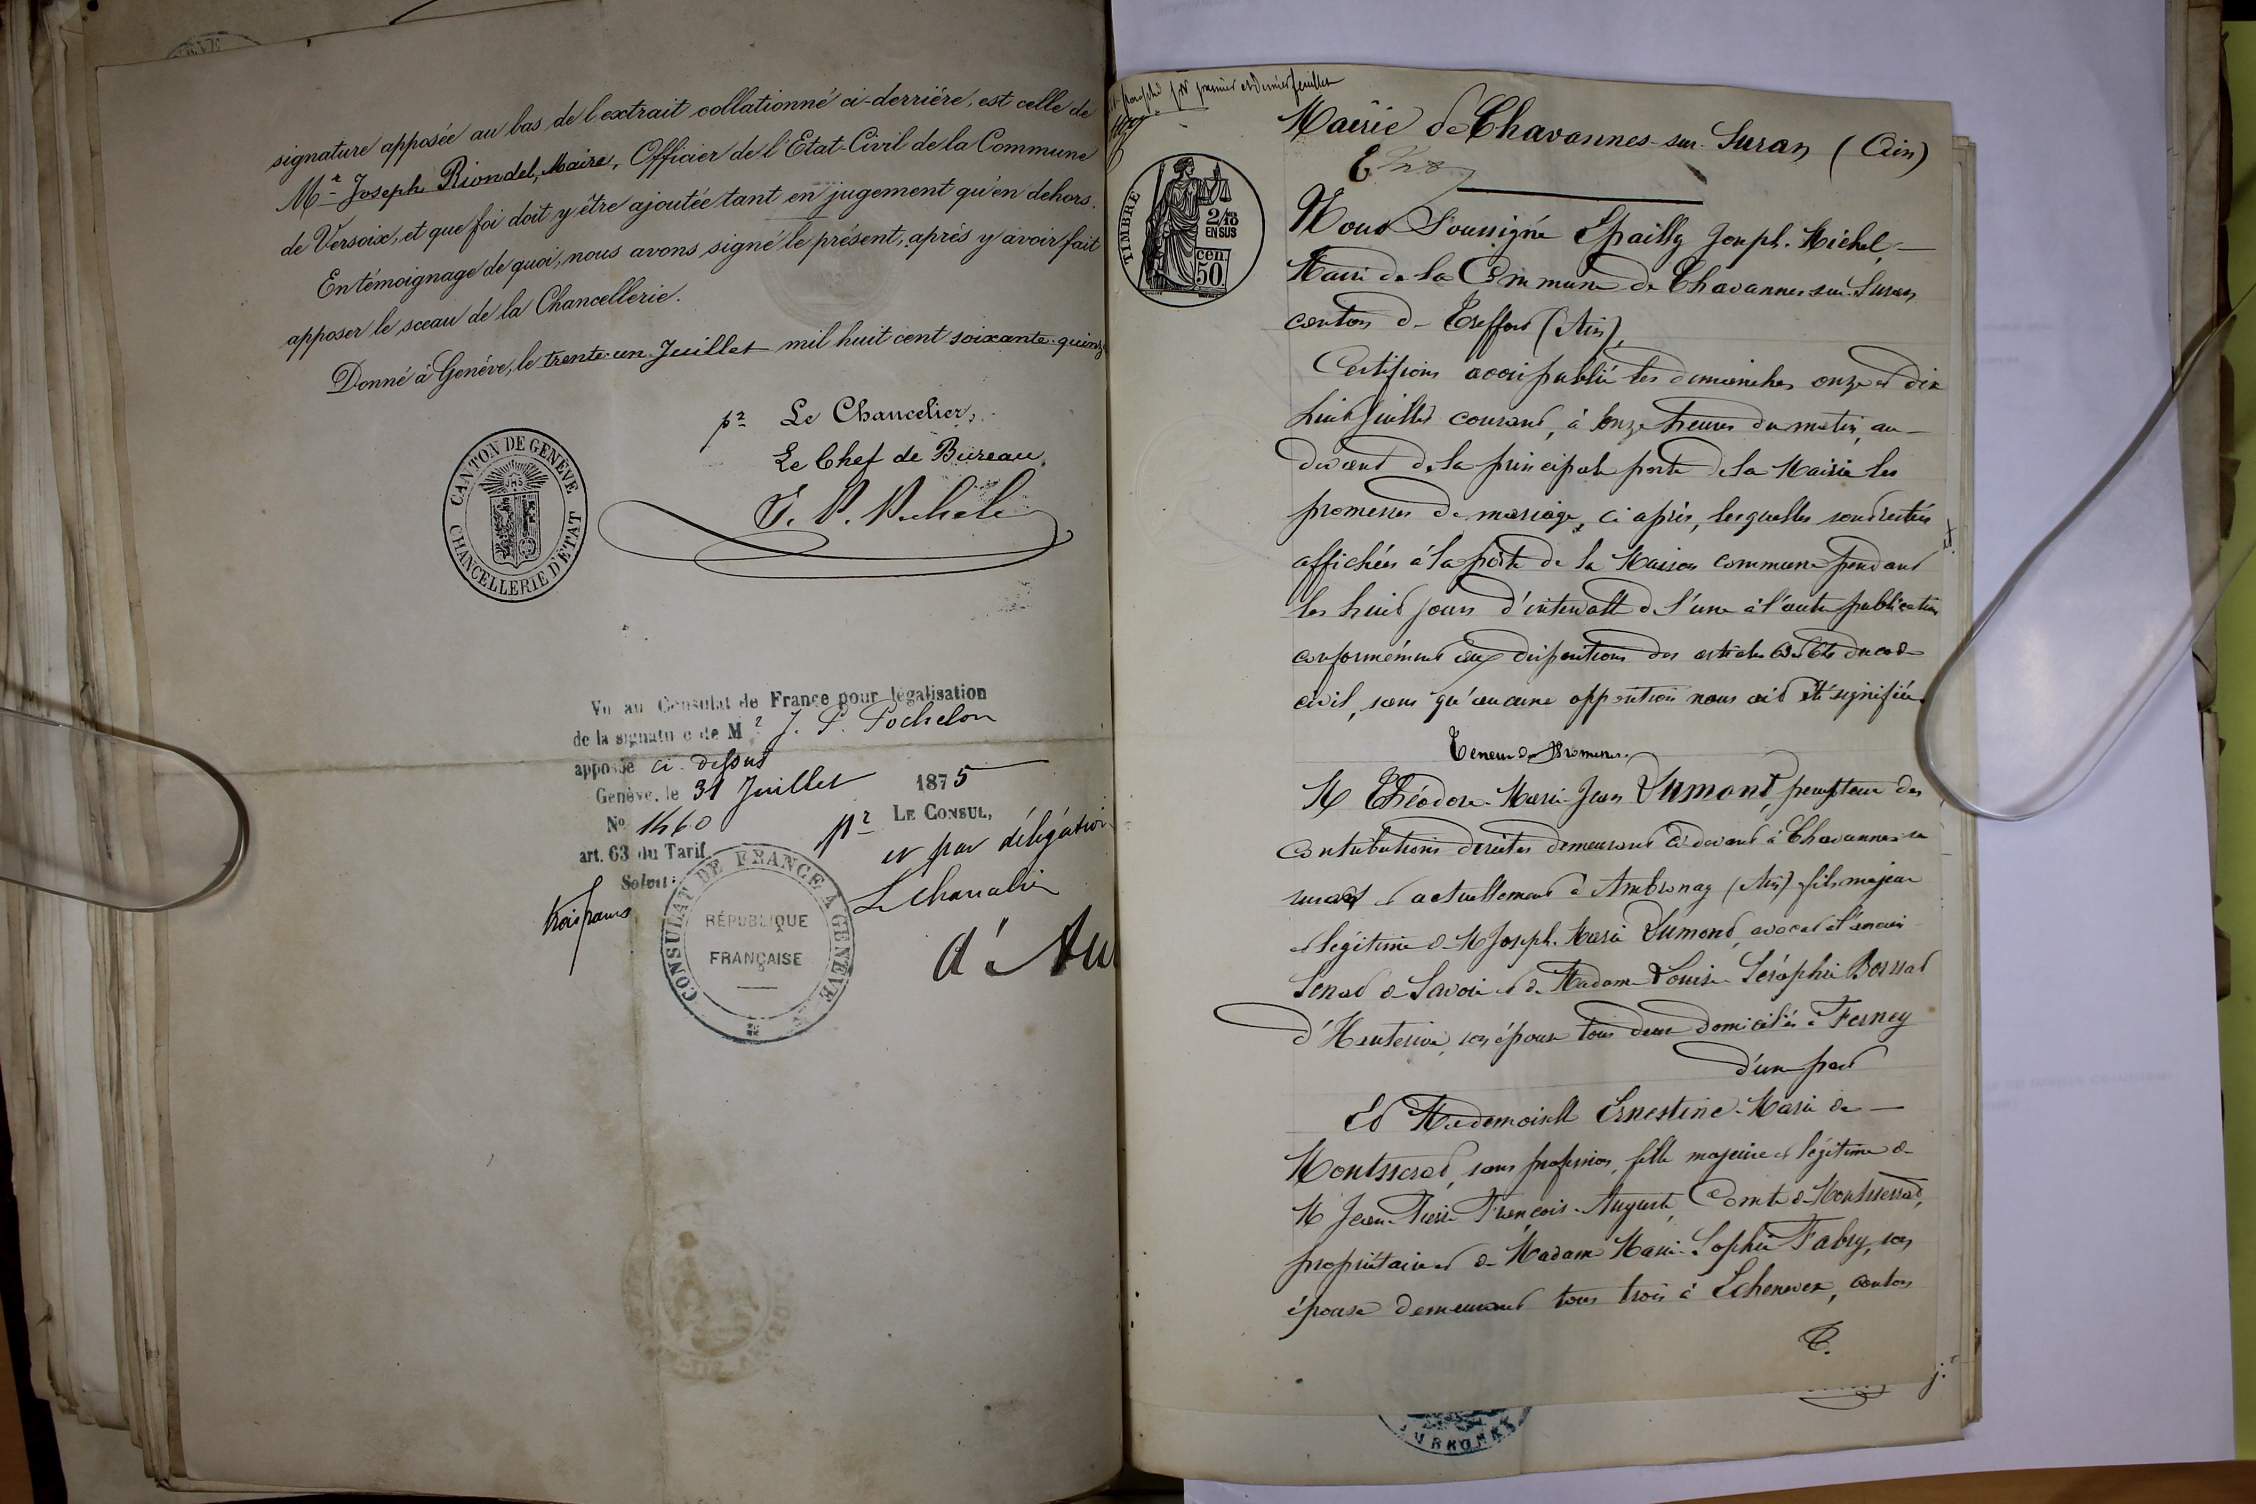 signature apposée au bas de l'extrait collationné ci-derrière, est celle de
Mr Joseph Riondel, Maire, Officier de l'Etat-Civil de la Commune
de Versoix, et que foi doit y être ajoutée tant en jugement qu'en dehors.
En témoignage de quoi, nous avons signé le présent, après y avoir fait
apposer le sceau de la Chancellerie.
Donné à Genève, le trente-un Juillet mil huit cent soixante-quinze
pr Le Chancelier,
Le Chef de Bureau,
CANTON DE GENÈVE
CHANCELLERIE D'ETAT
Vu au Consulat de France pour légalisation
de la signature de Mr J. P. Pochelon
apposée ci-dessus
Genève, le 31 Juillet 1875
No 1460
pr LE CONSUL,
art. 63 du Tarif
et par délégation
Soient:
trois francs
Le Chancelier
CONSULAT DE FRANCE A GENÈVE
RÉPUBLIQUE
FRANÇAISE
paraphé par premier et dernier feuillet
Mairie de Chavannes-sur-Suran (Ain)
TIMBRE
2/10
EN SUS
50 cen.
Nous Soussigné Epailly Joseph-Michel,
Maire de la Commune de Chavannes-sur-Suran
canton de Treffort (Ain),
Certifions avoir publié les dimanches onze et dix
huit Juillet courant, à onze heures du matin, au
devant de la principale porte de la Mairie les
promesses de mariage, ci après, lesquelles sont restées
affichées à la porte de la Maison commune pendant
les huit jours d'intervalle de l'une à l'autre publication
conformément aux dispositions des articles 63 et 64 du code
civil, sans qu'aucune opposition nous ait été signifiée.
Teneur des Promesses.
M Théodore-Marie-Jean Dumont, percepteur des
contributions directes demeurant ci-devant à Chavannes-su
suran et actuellement à Ambronay (Ain) fils majeur
et légitime de M Joseph-Marie Dumont, avocat à l'ancien
Senat de Savoie et de Madame Louise Séraphie Borssat
d'Hauterive, son épouse tous deux domiciliés à Ferney
d'une part
Et Mademoiselle Ernestine-Marie de
Montsserat, sans profession, fille majeure et légitime de
M Jean-Pierre-François-Auguste, Comte de Montsserrat,
propriétaire et de Madame Marie-Sophie Fabry, son
épouse demeurant tous trois à Echenevex, canton